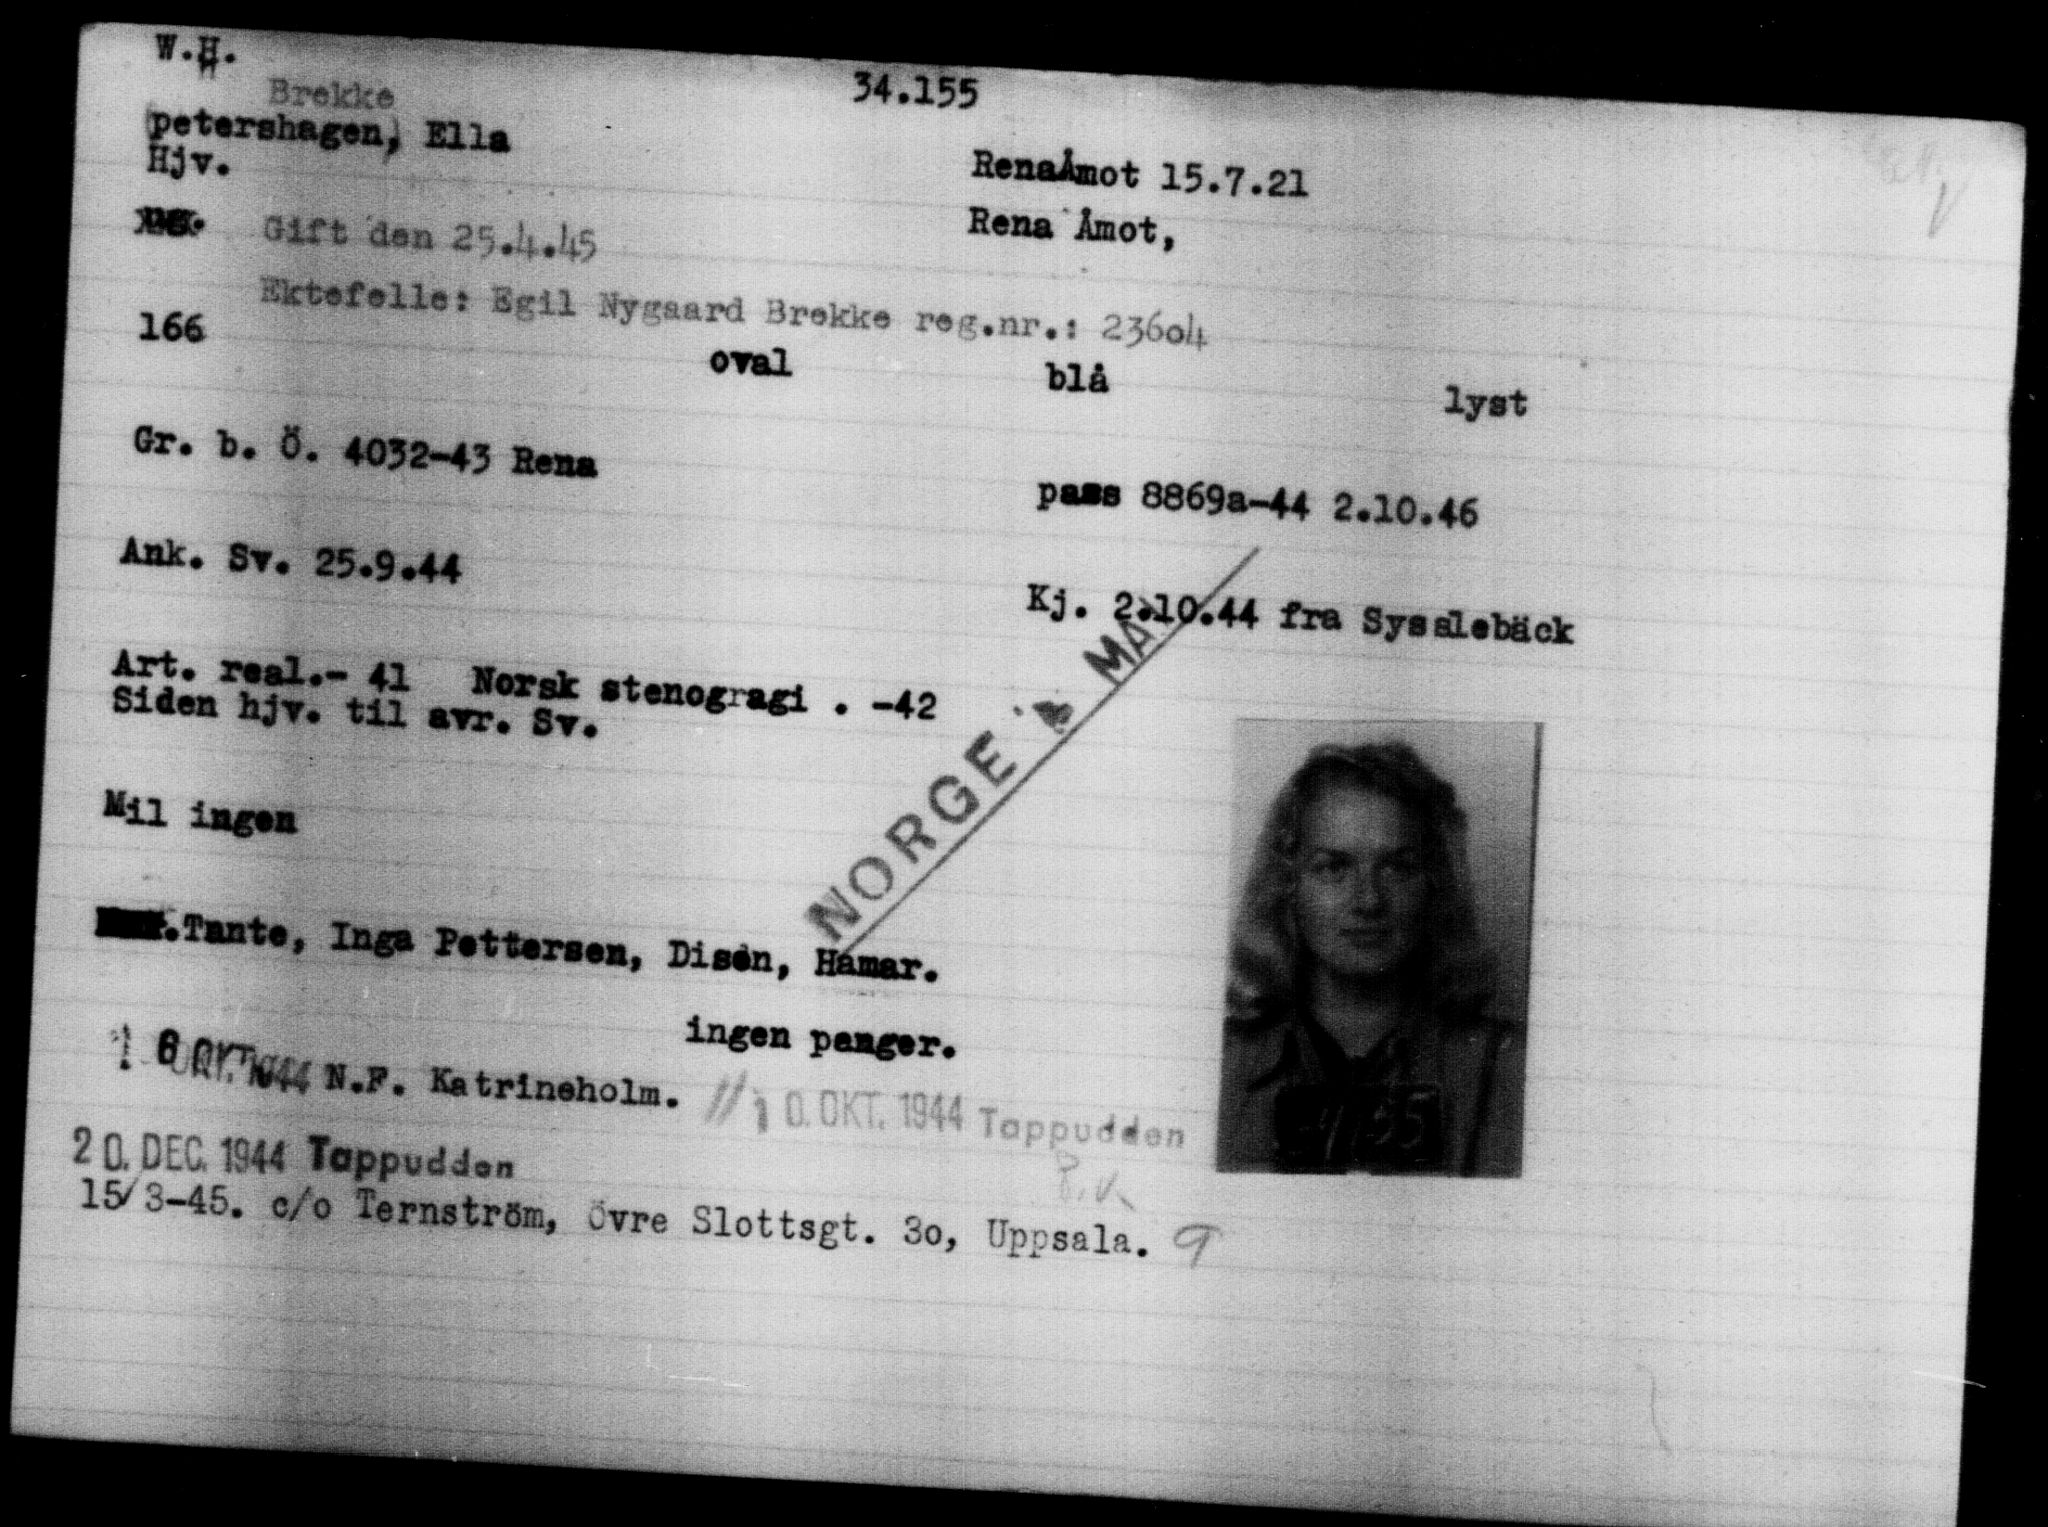 W.H.
34.155
Brekke
(petershagen), Ella
RenaÅmot 15.7.21
Hjv.
Rena Åmot,
ug. Gift den 25.4.45
Ektefelle: Egil Nygaard Brekke reg.nr.: 23604
166 oval blå lyst
Gr. b. Ö. 4032-43 Rena
pass 8869a-44 2.10.46
Ank. Sv. 25.9.44
Kj. 2.10.44 fra Sysslebäck
Art. real.- 41 Norsk stenogragi . -42
Siden hjv. til avr. Sv.
NORGE MAI
Mil ingen
Tante, Inga Pettersen, Disen, Hamar.
ingen penger.
1 6 OKT. 1944 N.F. Katrineholm. // 1 0. OKT. 1944 Tappudden
P.V.
2 0. DEC. 1944 Tappudden
15/3-45. c/o Ternström, Övre Slottsgt. 3o, Uppsala.